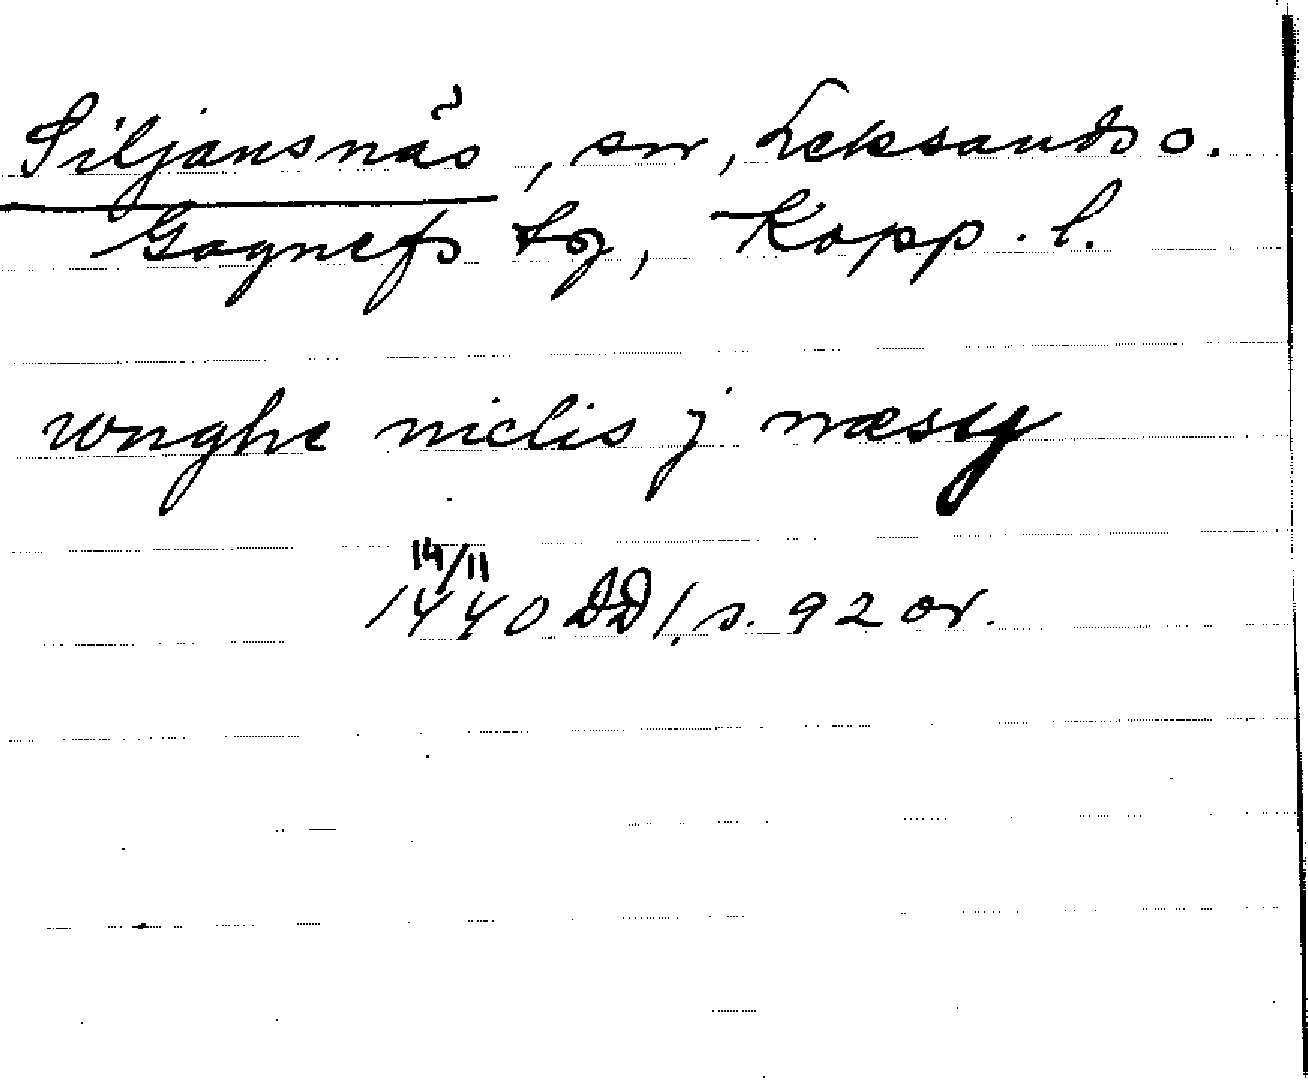 Siljansnäs, sn, Leksands o.
Gagnefs tg, Kopp. l.
wnghe niclis j næsy
14/11
1440 DD 1, s. 92 or.